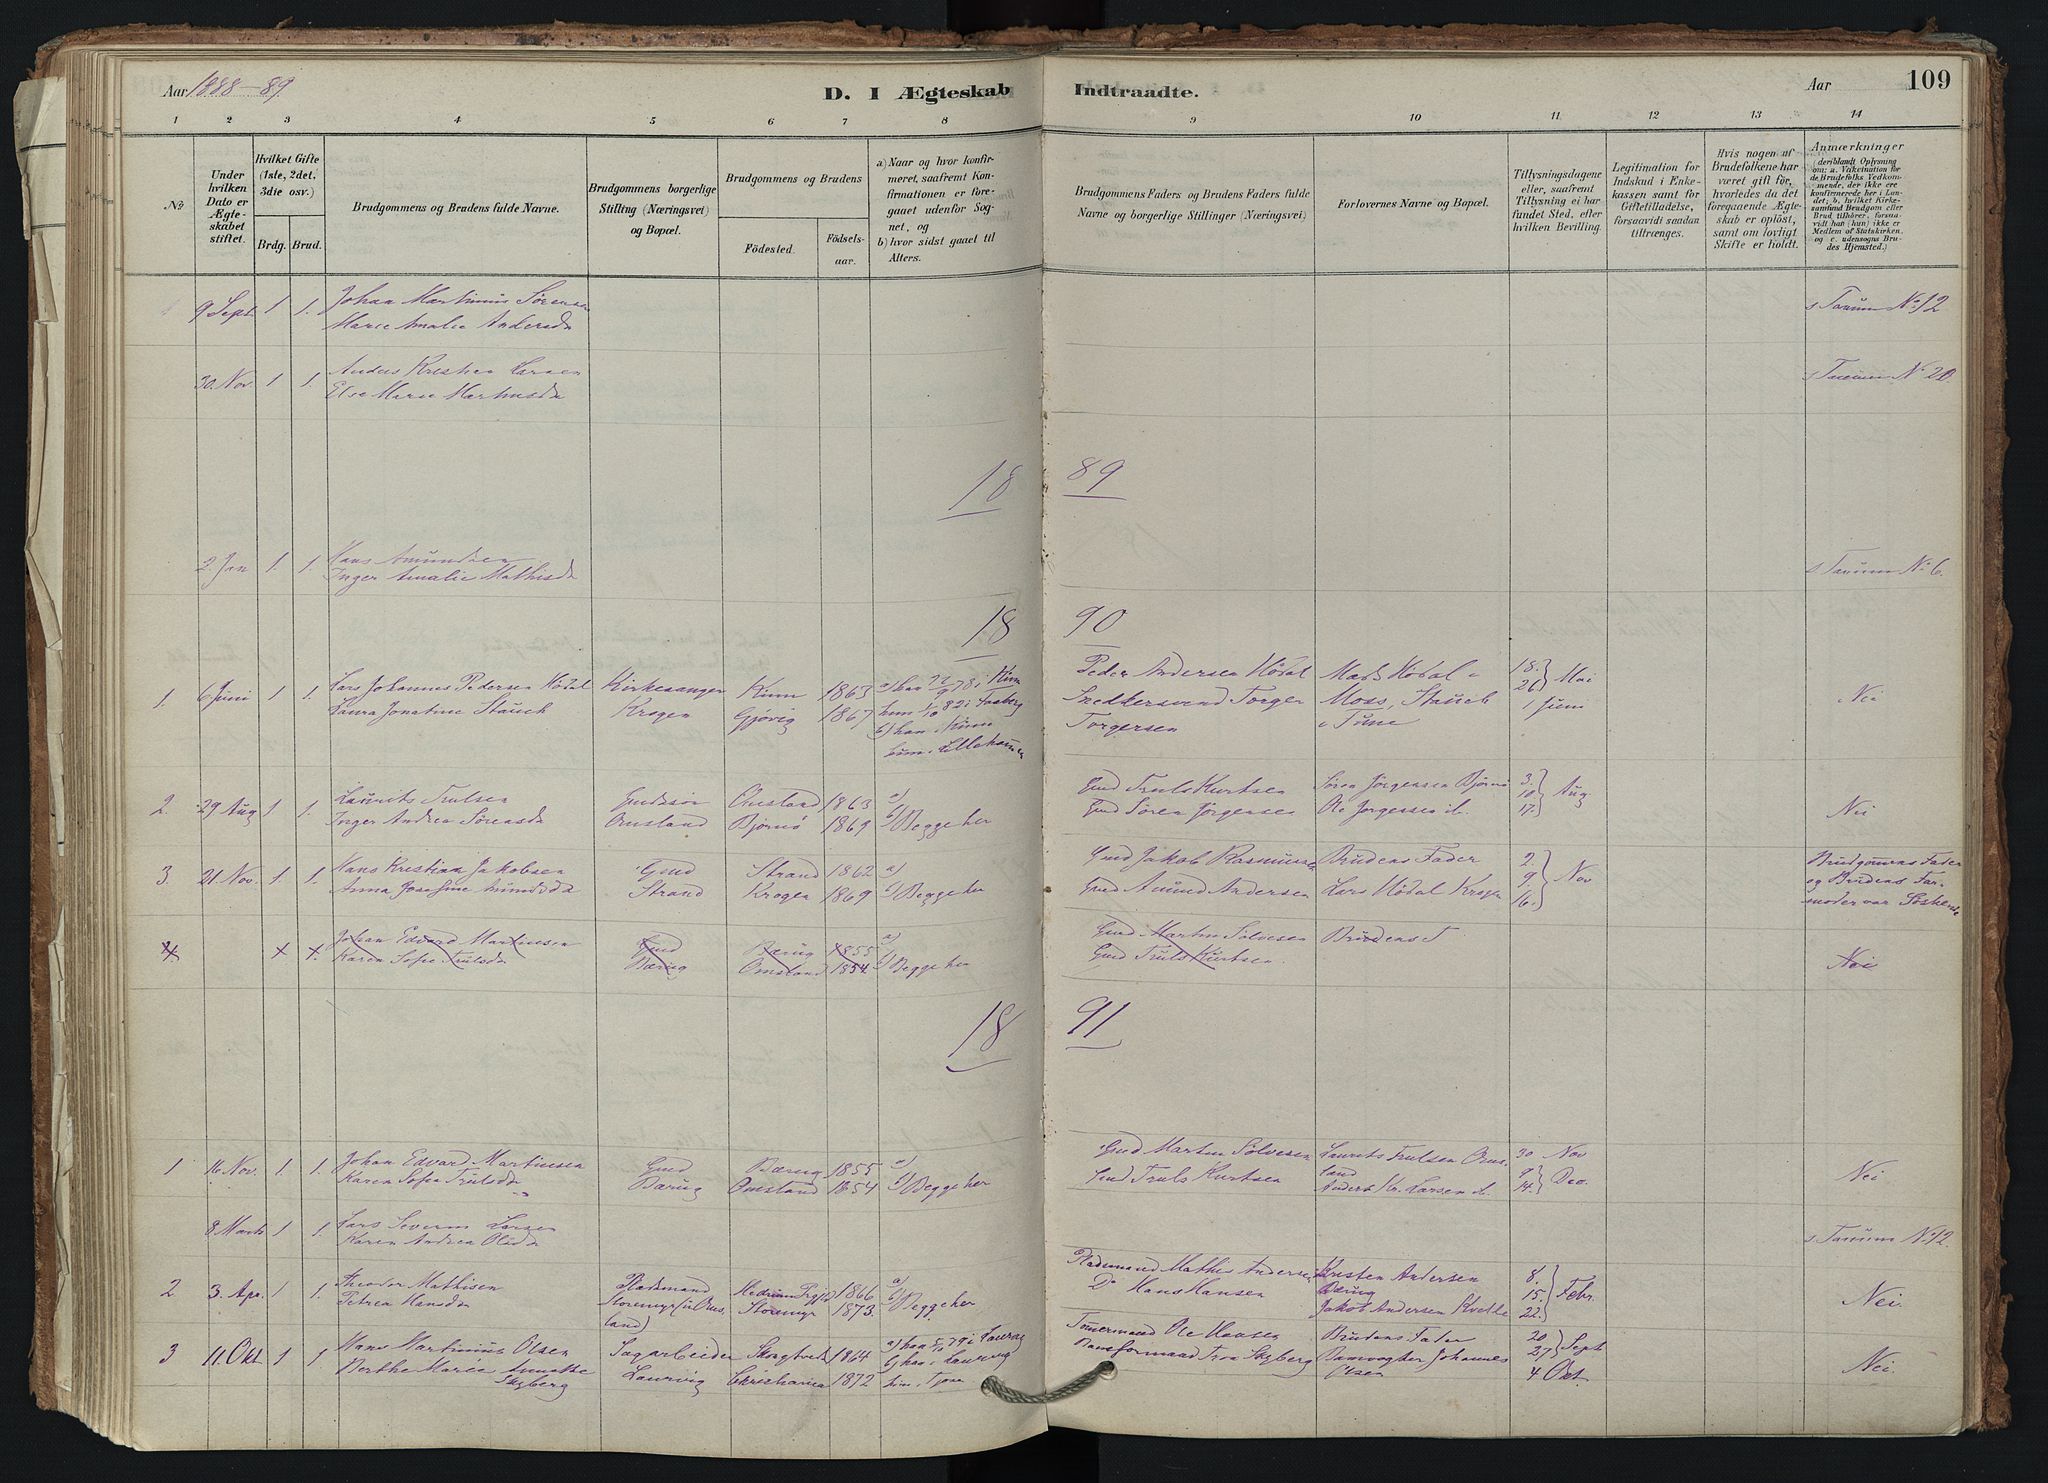 Aar 1888-89
D. I Ægteskab Indtraadte.
Aar
109
1 2 3 4 5 6 7 8 9 10 11 12 13 14
No
Under hvilken Dato er Ægteskabet stiftet.
Hvilket Gifte (1ste, 2det, 3die osv.)
Brdg. Brud.
Brudgommens og Brudens fulde Navne.
Brudgommens borgerlige Stilling (Næringsvei) og Bopæl.
Brudgommens og Brudens
Födested. Födselsaar.
a) Naar og hvor konfirmeret, saafremt Konfirmationen er foregaaet udenfor Sognet, og
b) hvor sidst gaaet til Alters.
Brudgommens Faders og Brudens Faders fulde Navne og borgerlige Stillinger (Næringsvei)
Forlovernes Navne og Bopæl.
Tillysningsdagene eller, saafremt Tillysning ei har fundet Sted, efter hvilken Bevilling.
Legitimation for Indskud i Enkekassen samt for Giftetilladelse, forsaavidt saadan tiltrænges.
Hvis nogen af Brudefolkene har været gift för, hvorledes da det foregaaende Ægteskab er oplöst, samt om lovligt Skifte er holdt.
Anmærkninger
(deriblandt Oplysning om: a. Vakcination for de Brudefolks Vedkommende, der ikke ere konfirmerede her i Landet; b. hvilket Kirkesamfund Brudgom eller Brud tilhörer, forsaavidt han (hun) ikke er Medlem af Statskirken, og c. udensogns Brudes Hjemsted.)
9 Sept 1 1. Johan Martinius Sørensen s. Tanum No 12
Marie Amalie Andersd
30. Nov. 1 1. Anders Kristian Larsen s. Tanum No 20.
Else Marie Martinsd
18 89
2. Jan 1. 1. Hans Amundsen s. Tanum No 6.
Inger Amalie Mathisd
18 90
1. 6 Juni 1 1. Lars Johannes Pedersen Hødal Kirkesanger 1863 a) han 22/9 78 i Peder Andersen Hødal Mads Hødal i 18. Mai Nei
Laura Jonatine Stauch Krogen Gjøvig 1867 hun 1/10 82 i Faaberg Snedkersvend Torger Moss, Stauch 26
b) han i hun i Lillehammer Torgersen i Tune 1 Juni
2. 29 Aug 1 1. Laurits Trulsen Gmdssøn Omsland 1863 a) Gmd Truls Kurtsen Søren Jørgensen Bjørnø 3. Aug Nei
Inger Andrea Sørensd Omsland Bjørnø 1869 b) Begge her Gmd Søren Jørgensen Ole Jørgensen 10. 17.
3. 21 Nov. 1. 1. Hans Kristian Jakobsen Gmd Strand 1862 a) Gmd Jakob Rasmussen Brudens Fader 2. Nov Brudgommens Fader
Anna Josefine Amundsd Strand Krogen 1869 b) Begge her Gmd Amund Andersen Lars Hødal Krogen 9 16. og Brudens Farmoder var Søskende
4. 1. 1. Johan Edvard Martinsen Gmd Bærug 1855 a) Gmd Martin Sølvesen Brudens F Nei
Karen Sofie Trulsd Bærug Omsland 1854 b) Begge her Gmd Truls Kurtsen
18 91
1 16 Nov. 1. 1. Johan Edvard Martinsen Gmd Bærug 1855 a) Gmd Martin Sølvesen Laurits Trulsen Omsland 30 Nov Nei
Karen Sofie Trulsd Bærug Omsland 1854 b) Begge her Gmd Truls Kurtsen Anders Kr. Larsen 9 14. Dec.
8 Marts 1 1. Lars Severin Larsen s. Tanum No 12.
Karen Andrea Olsd
2 3. Apr. 1 1. Theodor Mathisen Pladsmand 1866 a) Pladsmand Mathis Andersen Kristen Andersen Bærug 8. Febr. Nei.
Petrea Hansd Storemyr (u. Omsland) Storemyr 1873. b) Begge her Do Hans Hansen Jakob Andersen 15. 22.
3 11. Okt 1 1 Hans Martinius Olsen Sagarbeider 1864 a) han 5/10 79 i Laurvig Tømmermand Ole Hansen Brudens Fader 20 Sept Nei.
Berthe Marie Skyberg Laurvig Christiania 1872 b) han i Laurvig hun i Banformand Skyberg Banvogter Johannes Olsen 27 4 Okt.